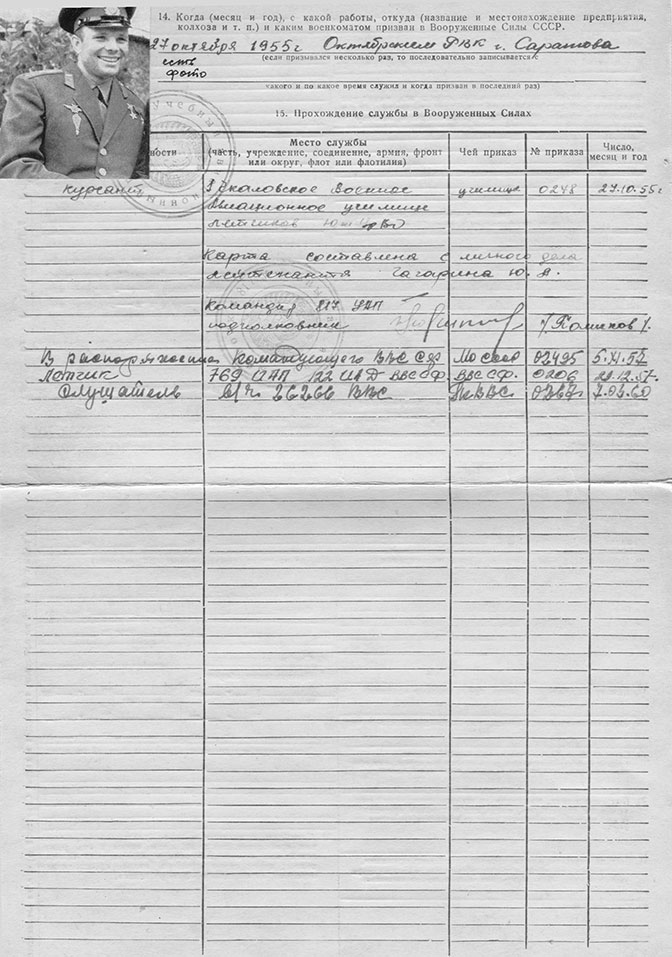 14. Когда (месяц и год), с какой работы, откуда (название и местонахождение предприятия,
колхоза и т. п.) и каким военкоматом призван в Вооруженные Силы СССР.
27 октября 1955г Октябрьским РВК г. Саратова
есть
фото
(если призывался несколько раз, то последовательно записывается с
какого и по какое время служил и когда призван в последний раз)
15. Прохождение службы в Вооруженных Силах
ности
Место службы
(часть, учреждение, соединение, армия, фронт
или округ, флот или флотилия)
Чей приказ
№ приказа
Число,
месяц и год
курсант Чкаловское Военное училище 0248 27.10.55г
Авиационное училище
летчиков
Карта составлена с личного дела
лейтенанта Гагарина Ю. А.
Командир 817 УАП
подполковник
В распоряжении Командующего ВВС СФ МО СССР 02495 5.XI.57
Летчик 769 ИАП 122 ИАД ВВС СФ. ВВС СФ. 0206 29.12.57.
Слушатель в/ч 26266 ВВС ВВС 7.03.60